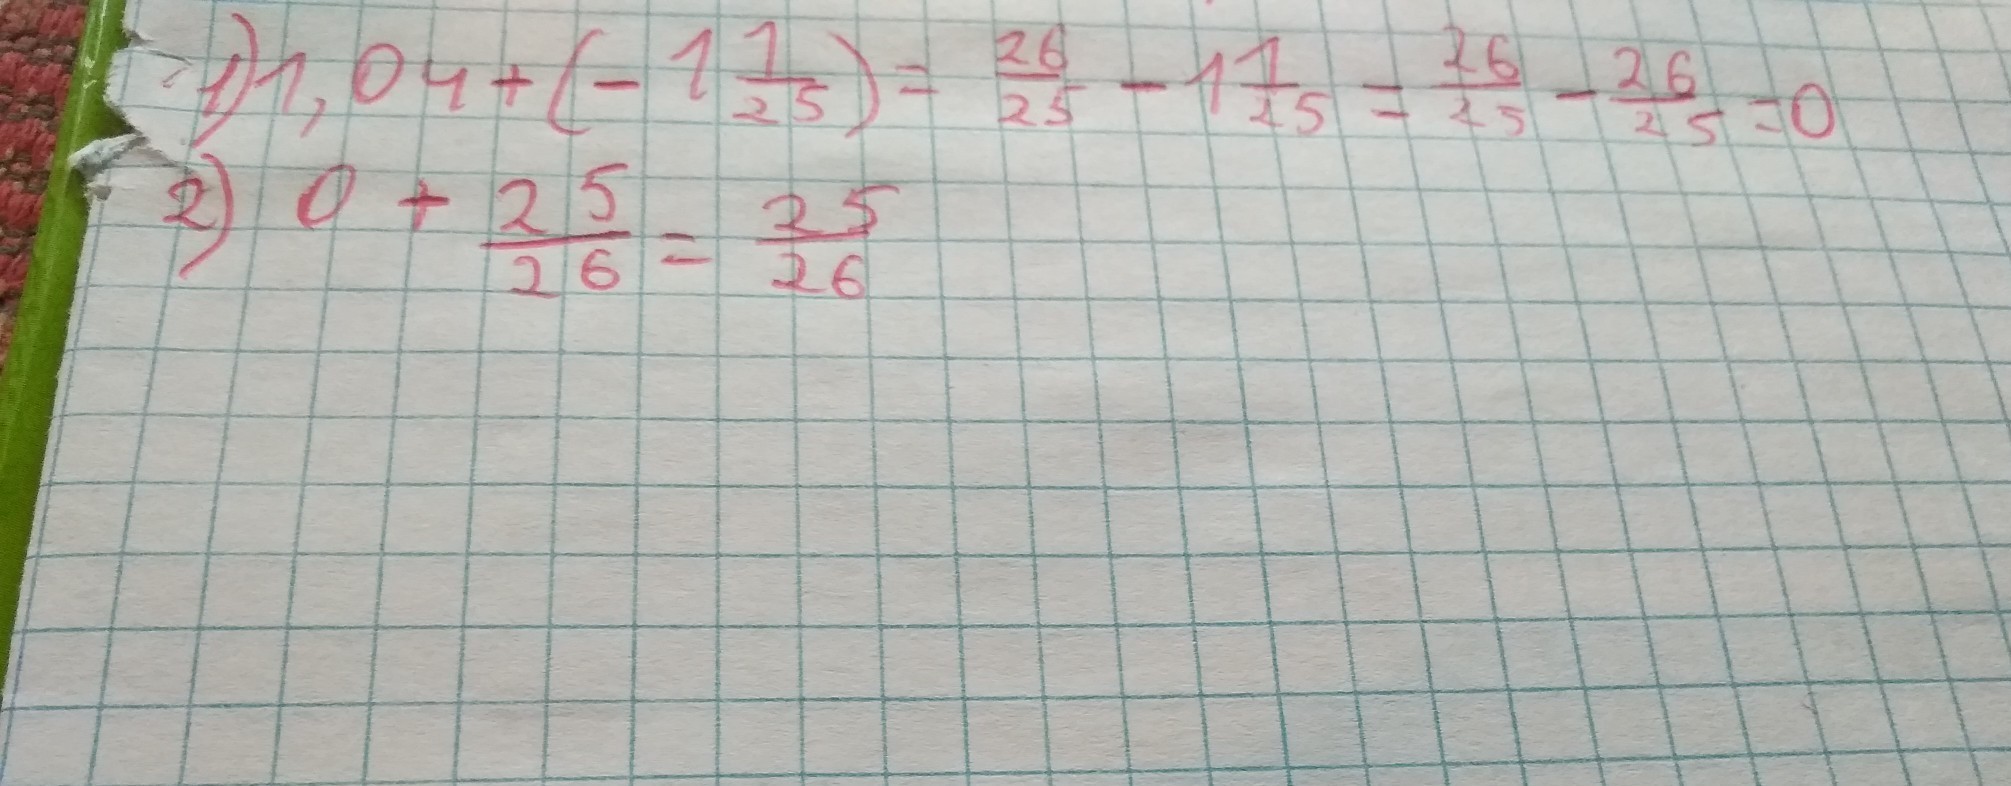 1) 1,04 + (- 1 1/25) = 26/25 - 1 1/25 = 26/25 - 26/25 = 0
2) 0 + 25/26 = 25/26